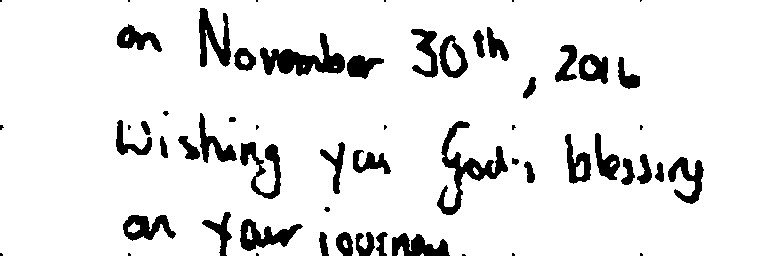 on November 30th, 2016
Wishing you God's blessing
on your journey